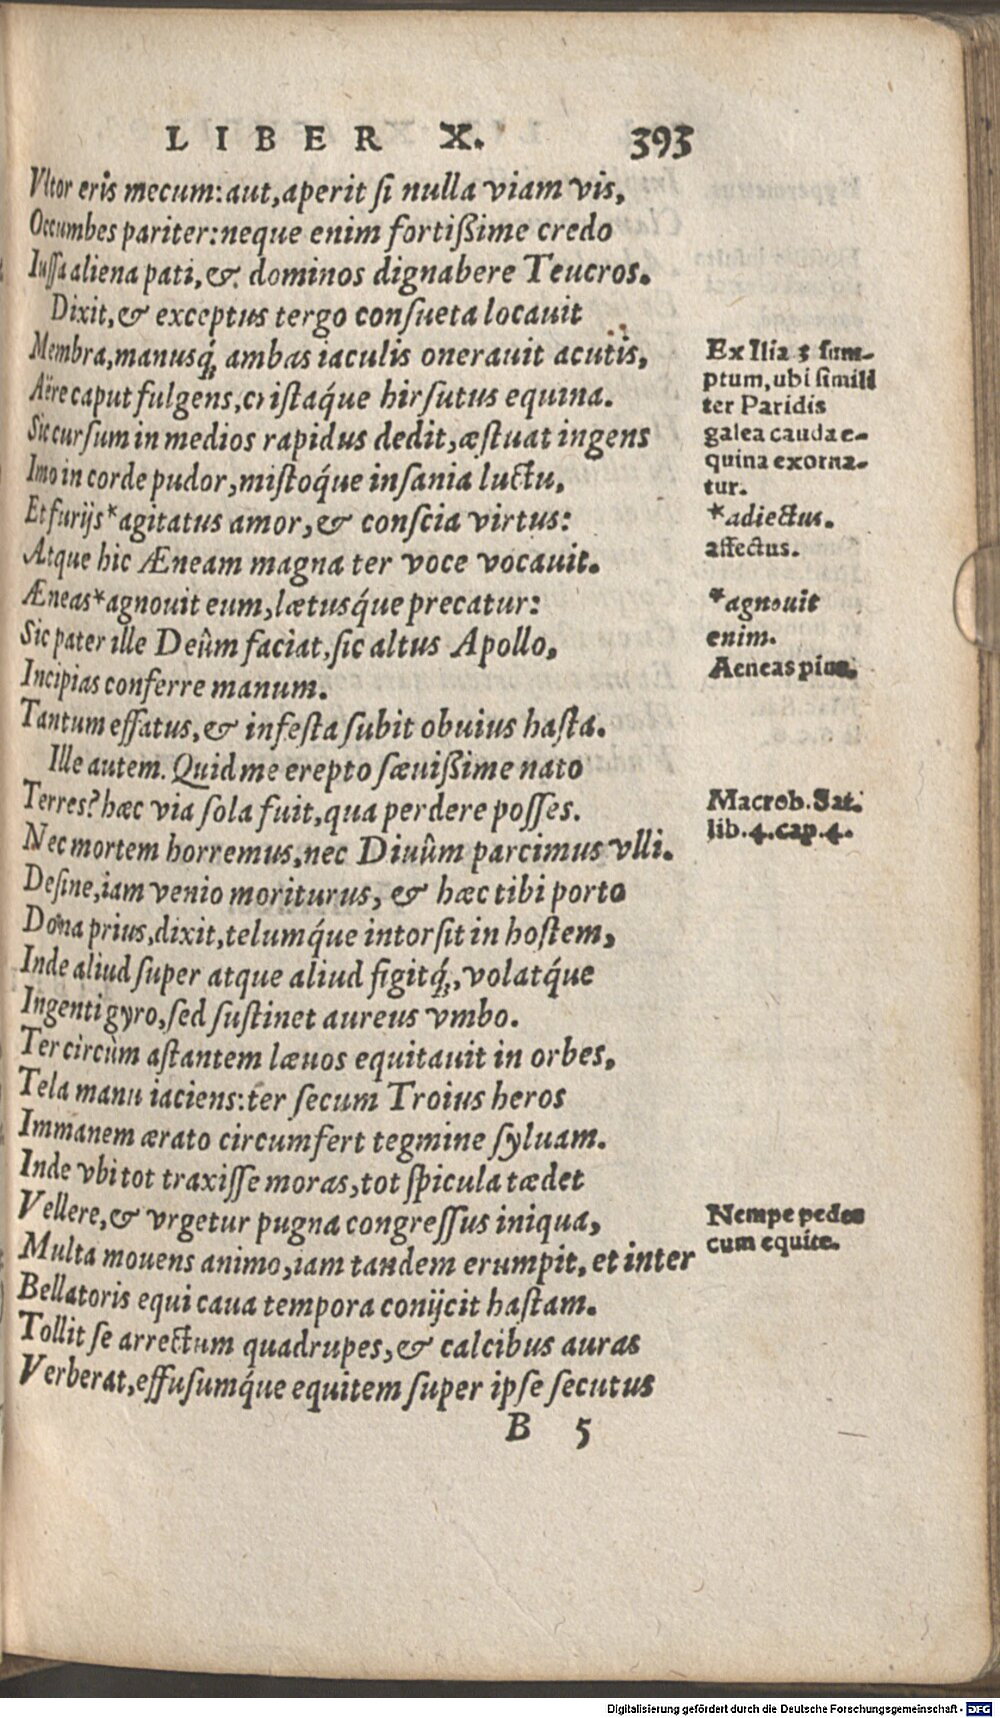 LIBER X. 393
Vltor eris mecum: aut, aperit si nulla viam vis,
Occumbes pariter: neque enim fortißime credo
Iussa aliena pati, & dominos dignabere Teucros.
Dixit, & exceptus tergo consueta locauit
Membra, manusq́; ambas iaculis onerauit acutis,
Aëre caput fulgens, cristaq́ue hirsutus equina.
Sic cursum in medios rapidus dedit, æstuat ingens
Imo in corde pudor, mistoq́ue insania luctu,
Et furijs* agitatus amor, & conscia virtus:
Atque hic Æneam magna ter voce vocauit.
Æneas* agnouit eum, lætusq́ue precatur:
Sic pater ille Deûm faciat, sic altus Apollo,
Incipias conferre manum.
Tantum effatus, & infesta subit obuius hasta.
Ille autem. Quid me erepto sæuißime nato
Terres? hæc via sola fuit, qua perdere posses.
Nec mortem horremus, nec Diuûm parcimus vlli.
Desine, iam venio moriturus, & hæc tibi porto
Dona prius, dixit, telumq́ue intorsit in hostem,
Inde aliud super atque aliud figitq́;, volatq́ue
Ingenti gyro, sed sustinet aureus vmbo.
Ter circùm astantem læuos equitauit in orbes,
Tela manu iaciens: ter secum Troius heros
Immanem ærato circumfert tegmine syluam.
Inde vbi tot traxisse moras, tot spicula tædet
Vellere, & vrgetur pugna congressus iniqua,
Multa mouens animo, iam tandem erumpit, et inter
Bellatoris equi caua tempora conijcit hastam.
Tollit se arrectum quadrupes, & calcibus auras
Verberat, effusumq́ue equitem super ipse secutus
B 5
Ex Ilia 3 sum-
ptum, ubi simili
ter Paridis
galea cauda e-
quina exorna-
tur.
*adiectus.
affectus.
*agnouit
enim.
Aeneas pius.
Macrob. Sat.
lib. 4. cap. 4.
Nempe pedes
cum equite.
Digitalisierung gefördert durch die Deutsche Forschungsgemeinschaft - DFG